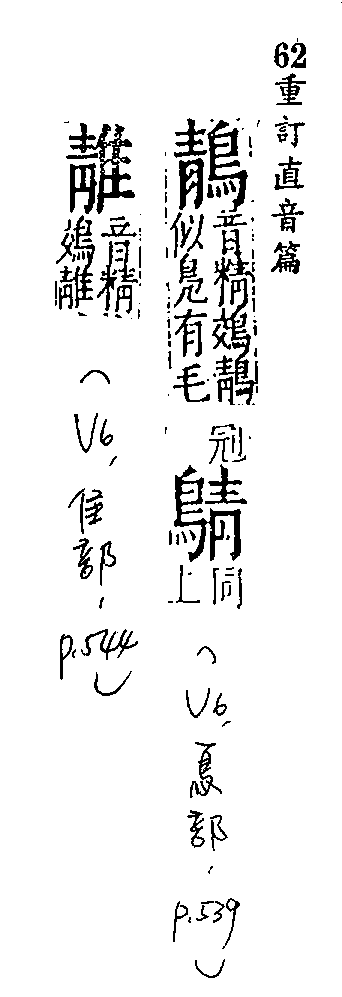 62重訂直音篇
鶄
音精鵁鶄
似鳧有毛
冠
同上
(V6,鳥部,p.539)
䨝
音精
鵁䨝
(V6,隹部,p.544)